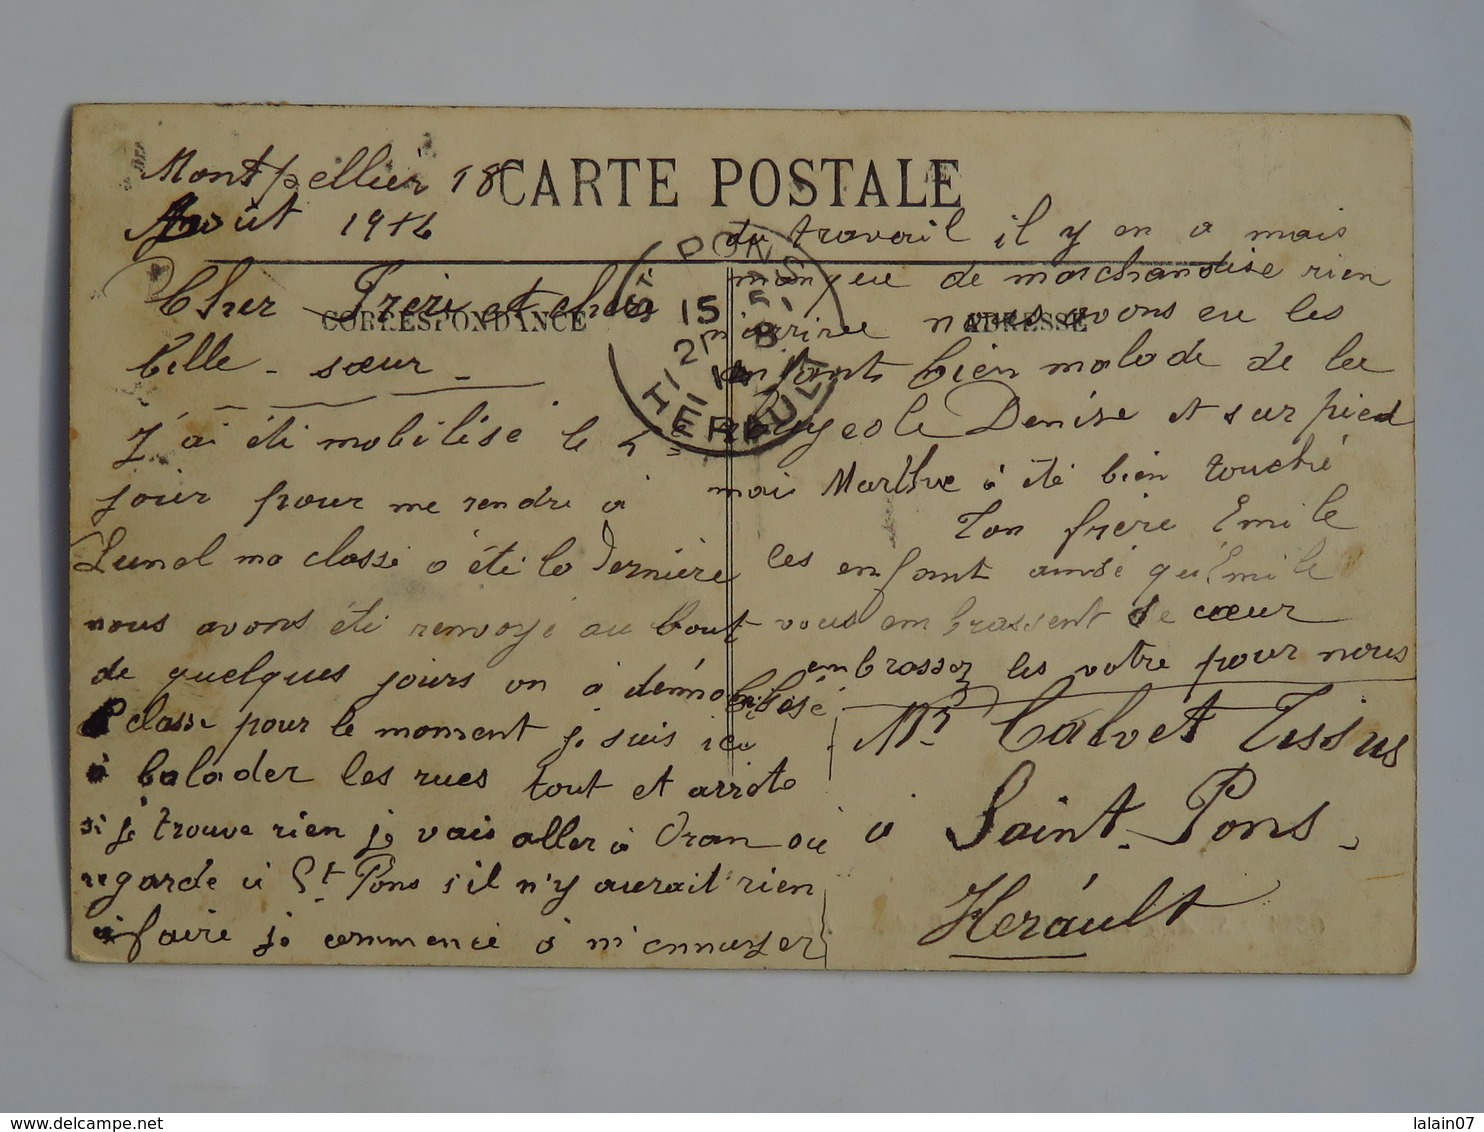 CARTE POSTALE
Montpellier 18
Août 1914
CORRESPONDANCE
Cher Frère et chère
Belle - sœur -
J'ai éti mobilisé le 5
jour pour me rendre à
Lunel ma classe a éti la Dernière
nous avons éti renvoyé au bout
de quelques jours on a démobilisé
classe pour le moment je suis ici
à balader les rues tout et arrêté
si je trouve rien je vais aller à Oran où
regarde à St Pons s'il n'y aurait rien
à faire je commence à m'ennuyer
du travail il y en a mais
manque de marchandise rien
n'arrive nous avons eu les
enfants bien malade de la
rougeole Denise et sur pied
mai Marthe a été bien touché
Ton frère Emile
les enfant ainsi qu'Emile
vous embrassent de cœur
embrassez les votre pour nous
ADRESSE
Mr Calvet Tissus
à Saint-Pons -
Herault
ST PONS
15
21 8
14
HERAULT
delcampe.net
lalain07